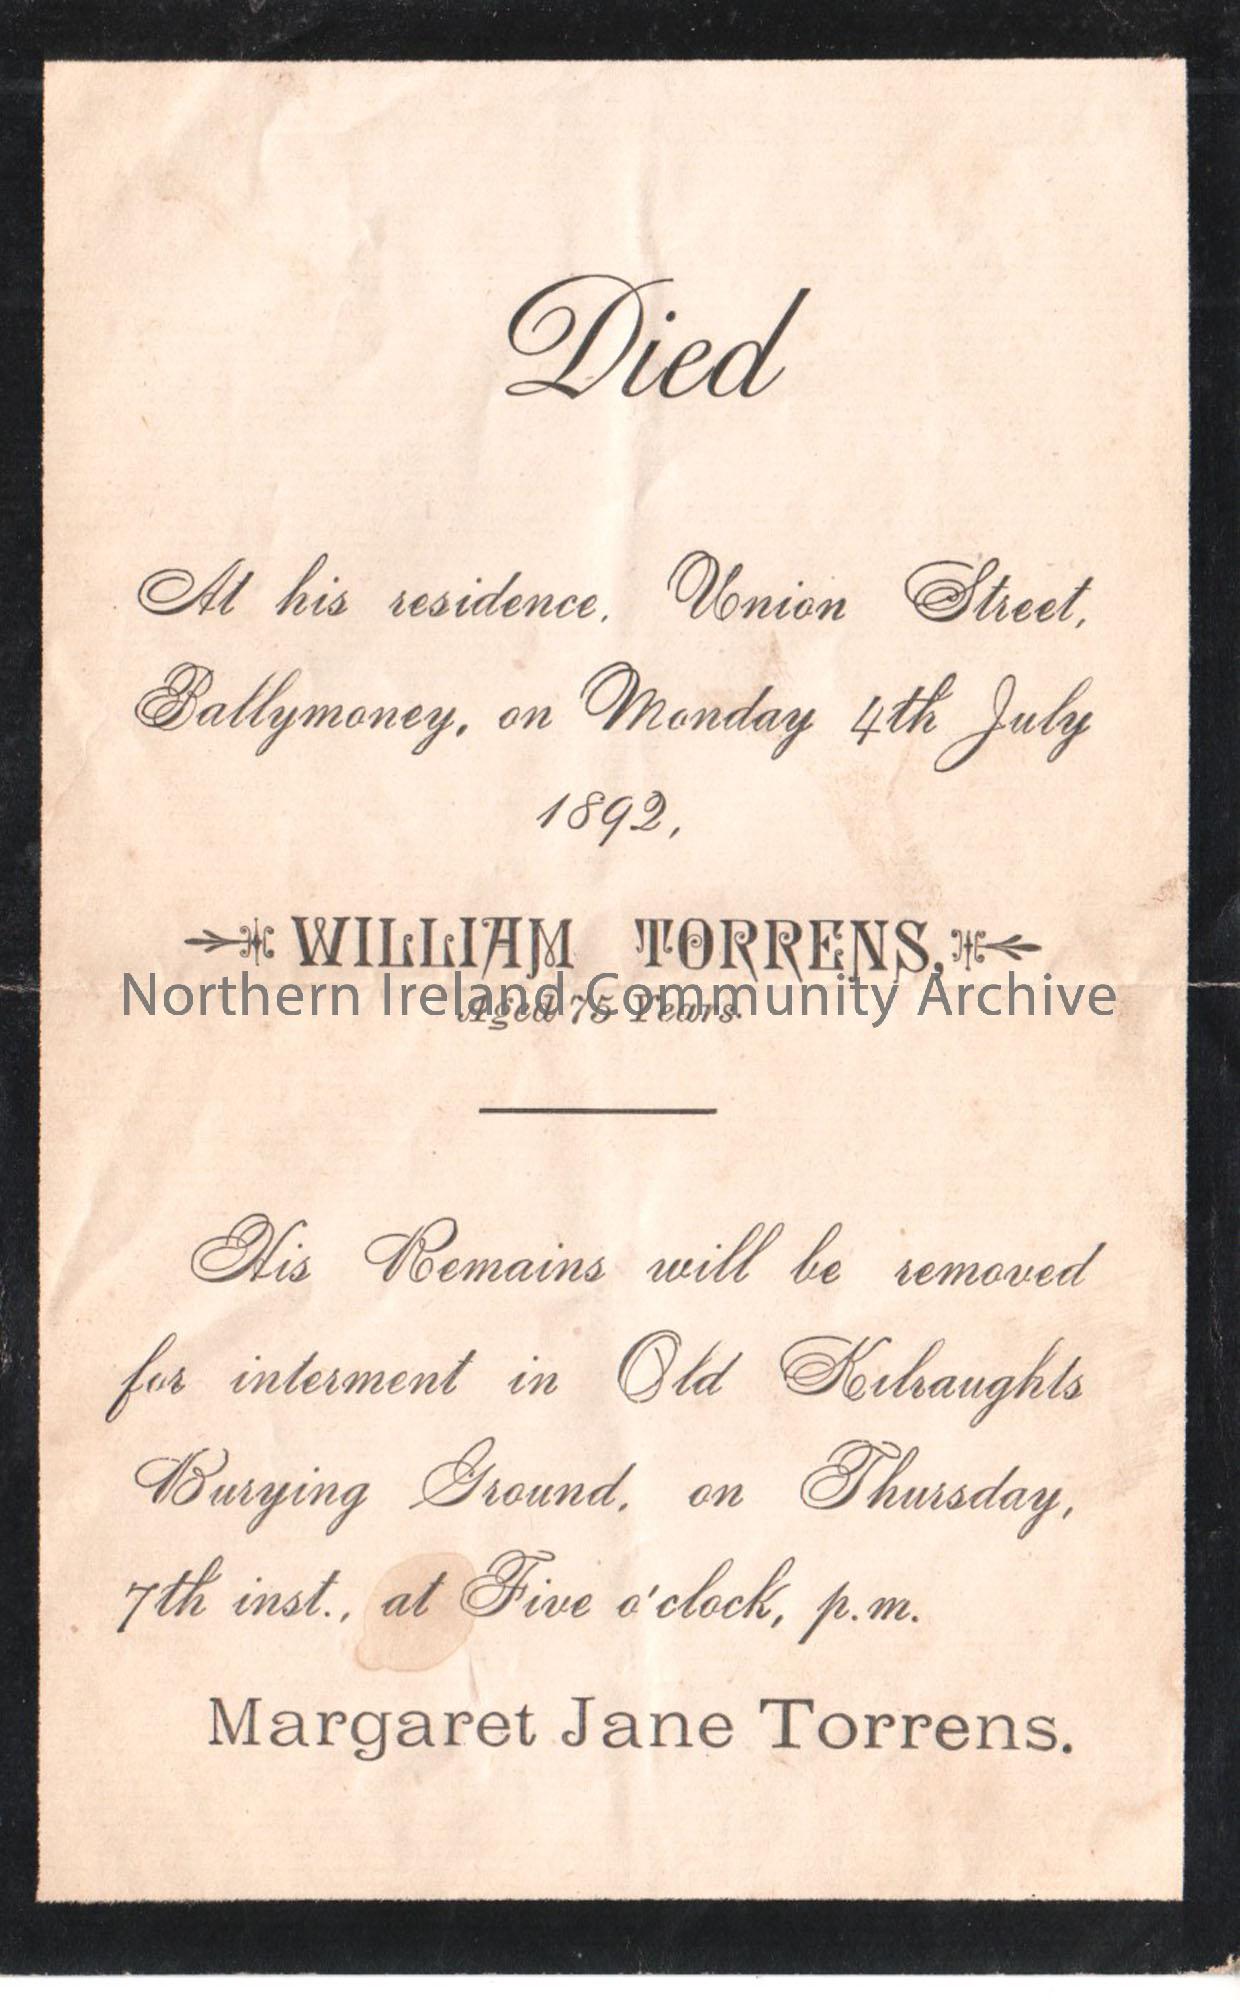 Died
At his residence, Union Street,
Ballymoney, on Monday 4th July
1892,
WILLIAM TORRENS,
Northern Ireland Community Archive
Aged 75 Years.
His Remains will be removed
for interment in Old Kilraughts
Burying Ground, on Thursday,
7th inst., at Five o'clock, p.m.
Margaret Jane Torrens.